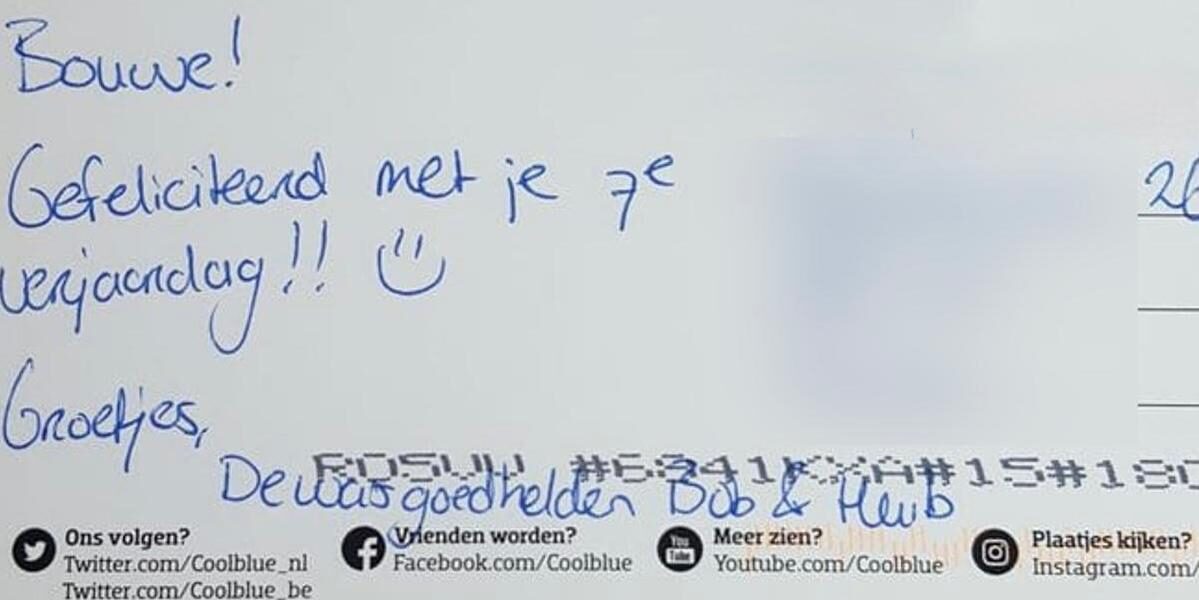 Bouwe!
Gefeliciteerd met je 7e
verjaardag!!
Groetjes,
De wasgoedhelden Bob & Huib
#15#180
Ons volgen?
Twitter.com/Coolblue_nl
Twitter.com/Coolblue_be
Vrienden worden?
Facebook.com/Coolblue
Meer zien?
Youtube.com/Coolblue
You Tube
Plaatjes kijken?
Instagram.com/